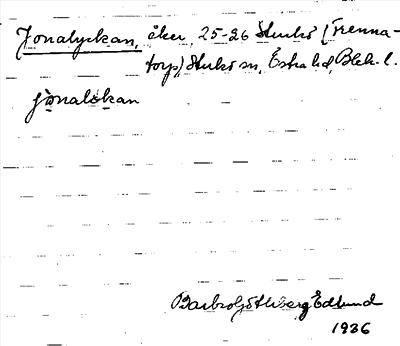 Jonalyckan, åker, 25-26 Sturkö (Trenna-
torp) Sturkö sn, Östra hd, Blek. l.
jònalö̀kan
Barbro Götherberg Edlund
1936